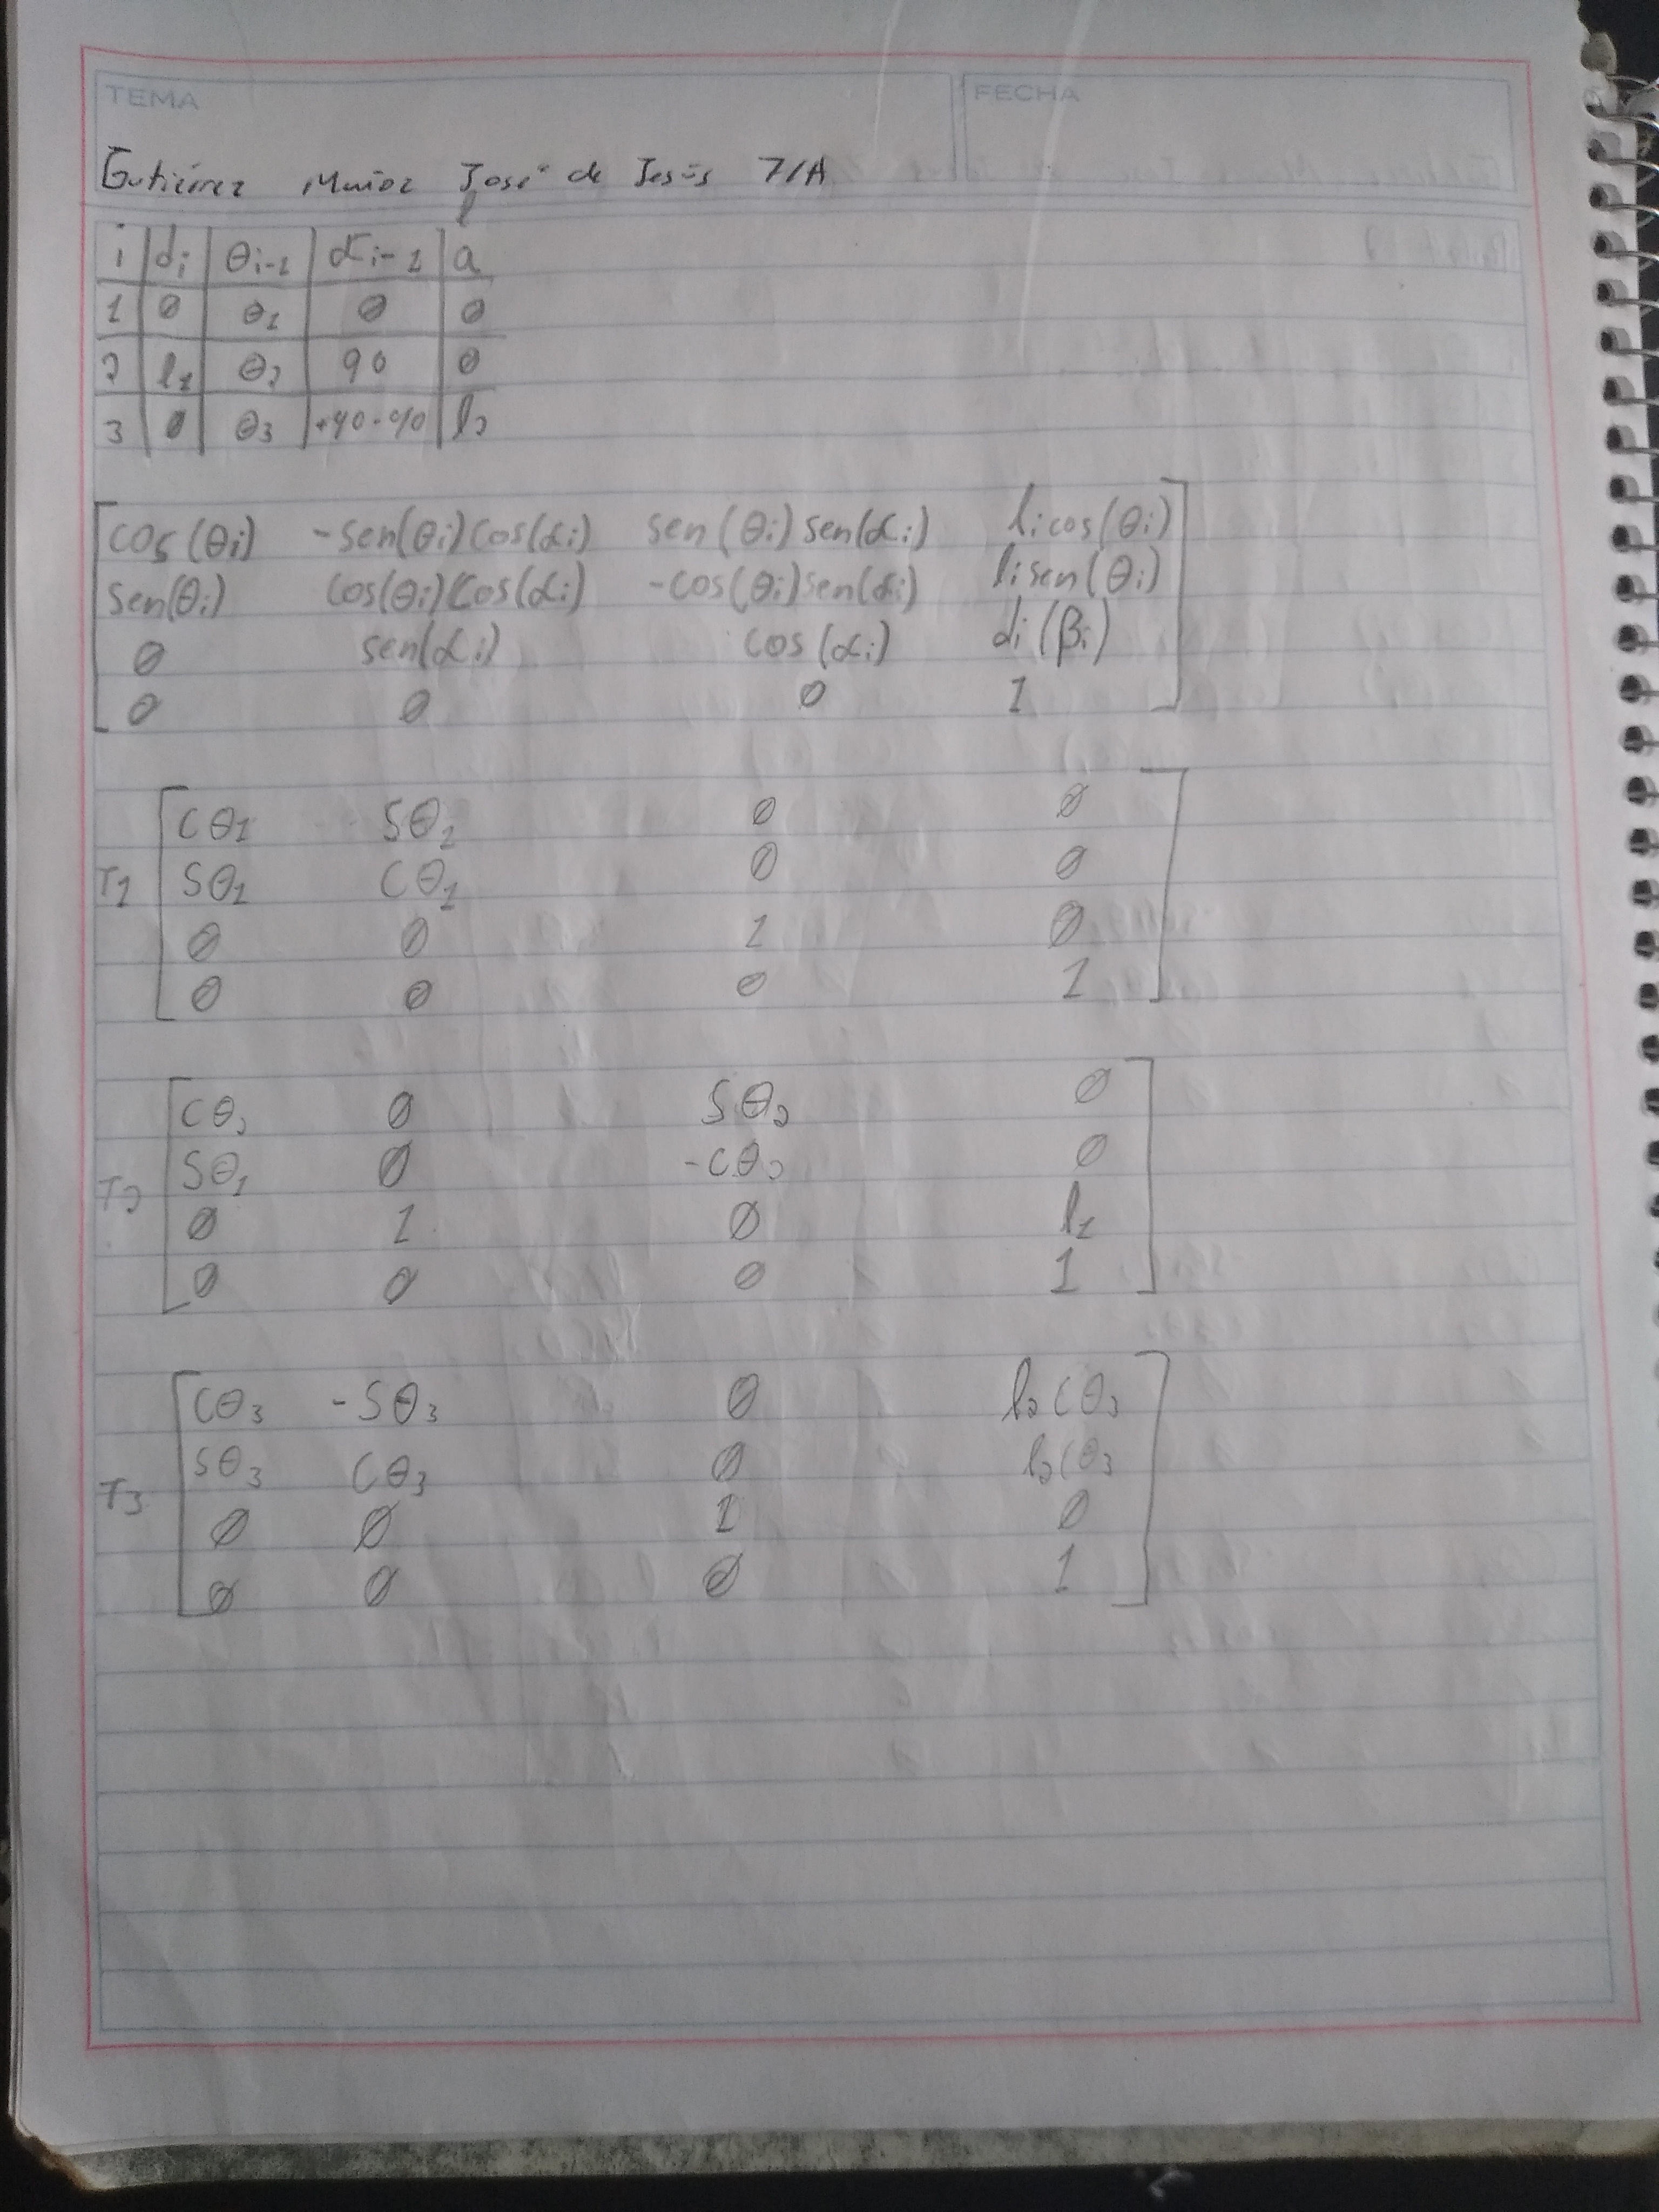 TEMA FECHA
Gutiérrez Muñoz José de Jesús 7/A
l
i di θi-1 αi-1 a
1 0 θ1 0 0
2 l1 θ2 90 0
3 0 θ3 +90-90 l2
cos(θi) -sen(θi)cos(αi) sen(θi)sen(αi) licos(θi)
sen(θi) cos(θi)cos(αi) -cos(θi)sen(αi) lisen(θi)
0 sen(αi) cos(αi) di(βi)
0 0 0 1
Cθ1 Sθ1 0 0
T1 Sθ1 Cθ1 0 0
0 0 1 0
0 0 0 1
Cθ2 0 Sθ2 0
T2 Sθ1 0 -Cθ2 0
0 1 0 l1
0 0 0 1
Cθ3 -Sθ3 0 l2Cθ3
T3 Sθ3 Cθ3 0 l2Cθ3
0 0 1 0
0 0 0 1